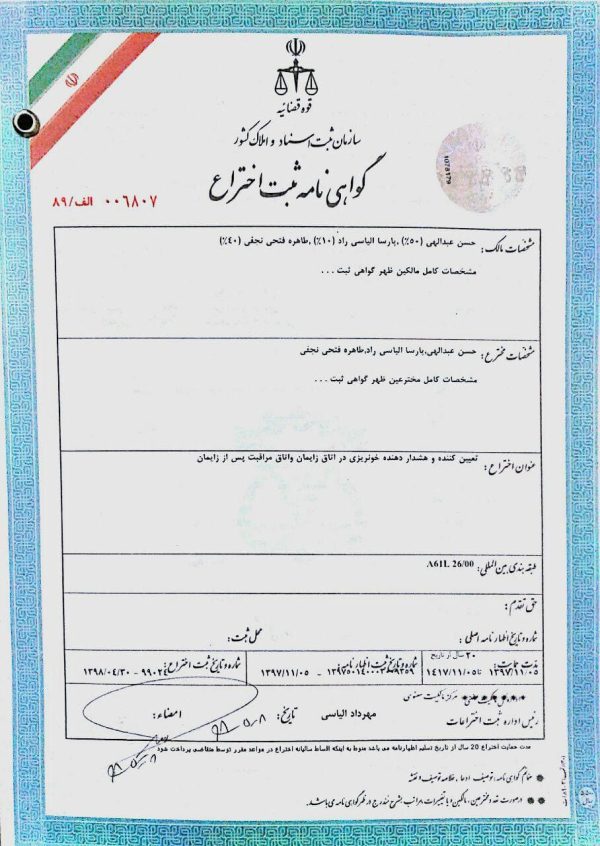 قوه قضائیه
سازمان ثبت اسناد و املاک کشور
گواهی نامه ثبت اختراع
۰۰۶۸۰۷ الف/۸۹
1078179
مشخصات مالک: حسن عبدالهی (۵۰٪) ,پارسا الیاسی راد (۱۰٪) ,طاهره فتحی نجفی (۴۰٪)
مشخصات کامل مالکین ظهر گواهی ثبت ...
مشخصات مخترع: حسن عبدالهی,پارسا الیاسی راد,طاهره فتحی نجفی
مشخصات کامل مخترعین ظهر گواهی ثبت ...
عنوان اختراع: تعیین کننده و هشدار دهنده خونریزی در اتاق زایمان واتاق مراقبت پس از زایمان
طبقه بندی بین المللی: A61L 26/00
حق تقدم:
شماره و تاریخ اظهار نامه اصلی: محل ثبت:
مدت حمایت: ۲۰ سال از تاریخ ۱۳۹۷/۱۱/۰۵ تا ۱۴۱۷/۱۱/۰۵
شماره و تاریخ ثبت اظهار نامه: ۱۳۹۷۵۰۱۴۰۰۰۳۰۹۳۵۹ - ۱۳۹۷/۱۱/۰۵
شماره و تاریخ ثبت اختراع: - ۱۳۹۸/۰۴/۳۰
مرکز مالکیت معنوی
رئیس اداره ثبت اختراعات مهرداد الیاسی تاریخ: امضاء:
مدت حمایت اختراع 20 سال از تاریخ تسلیم اظهارنامه می باشد منوط به اینکه اقساط سالیانه اختراع در مواعد مقرر توسط متقاضی پرداخت شود
ضمائم گواهی نامه: توصیف، ادعا، خلاصه توصیف و نقشه